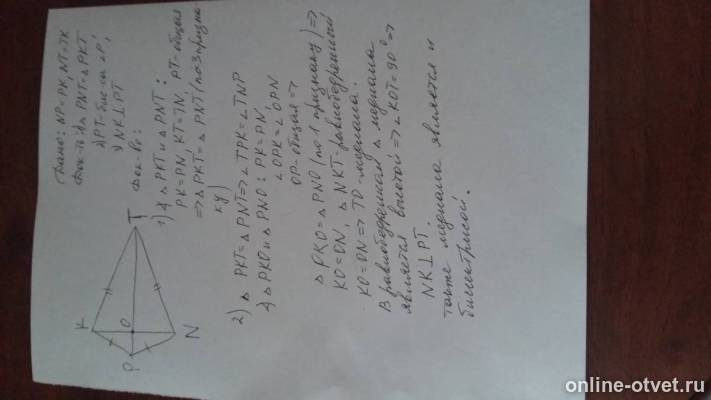 Дано: NP=PK, NT=TK
Док-ть: 1) △PNT=△PKT
2) PT-бис-са ∠P;
3) NK⊥PT
Док-во:
1) △PKT и △PNT:
PK=PN, KT=TN, PT-общая
=> △PKT=△PNT (по 3 призна
ку)
2) △PKT=△PNT => ∠TPK=∠TNP
△PKO и △PNO: PK=PN,
∠OPK=∠OPN
OP-общая =>
△PKO=△PNO (по 1 признаку) =>
KO=ON, △NKT-равнобедренный
KO=ON => TO-медиана.
В равнобедренном △ медиана
является высотой => ∠KOT=90° =>
NK⊥PT.
также медиана является и
биссектрисой.
T
K
O
P
N
online-otvet.ru